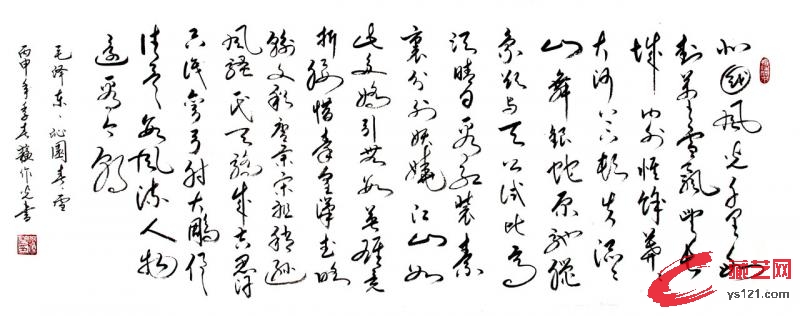 北国风光千里冰
封万里雪飘望长
城内外惟馀莽莽
大河上下顿失滔滔
山舞银蛇原驰蜡
象欲与天公试比高
须晴日看红装素
裹分外妖娆江山如
此多娇引无数英雄竞
折腰惜秦皇汉武略
输文彩唐宗宋祖稍逊
风骚一代天骄成吉思汗
只识弯弓射大雕俱
往矣数风流人物
还看今朝
毛泽东、沁园春雪
丙申年季春 作光书
藏艺网
ys121.com